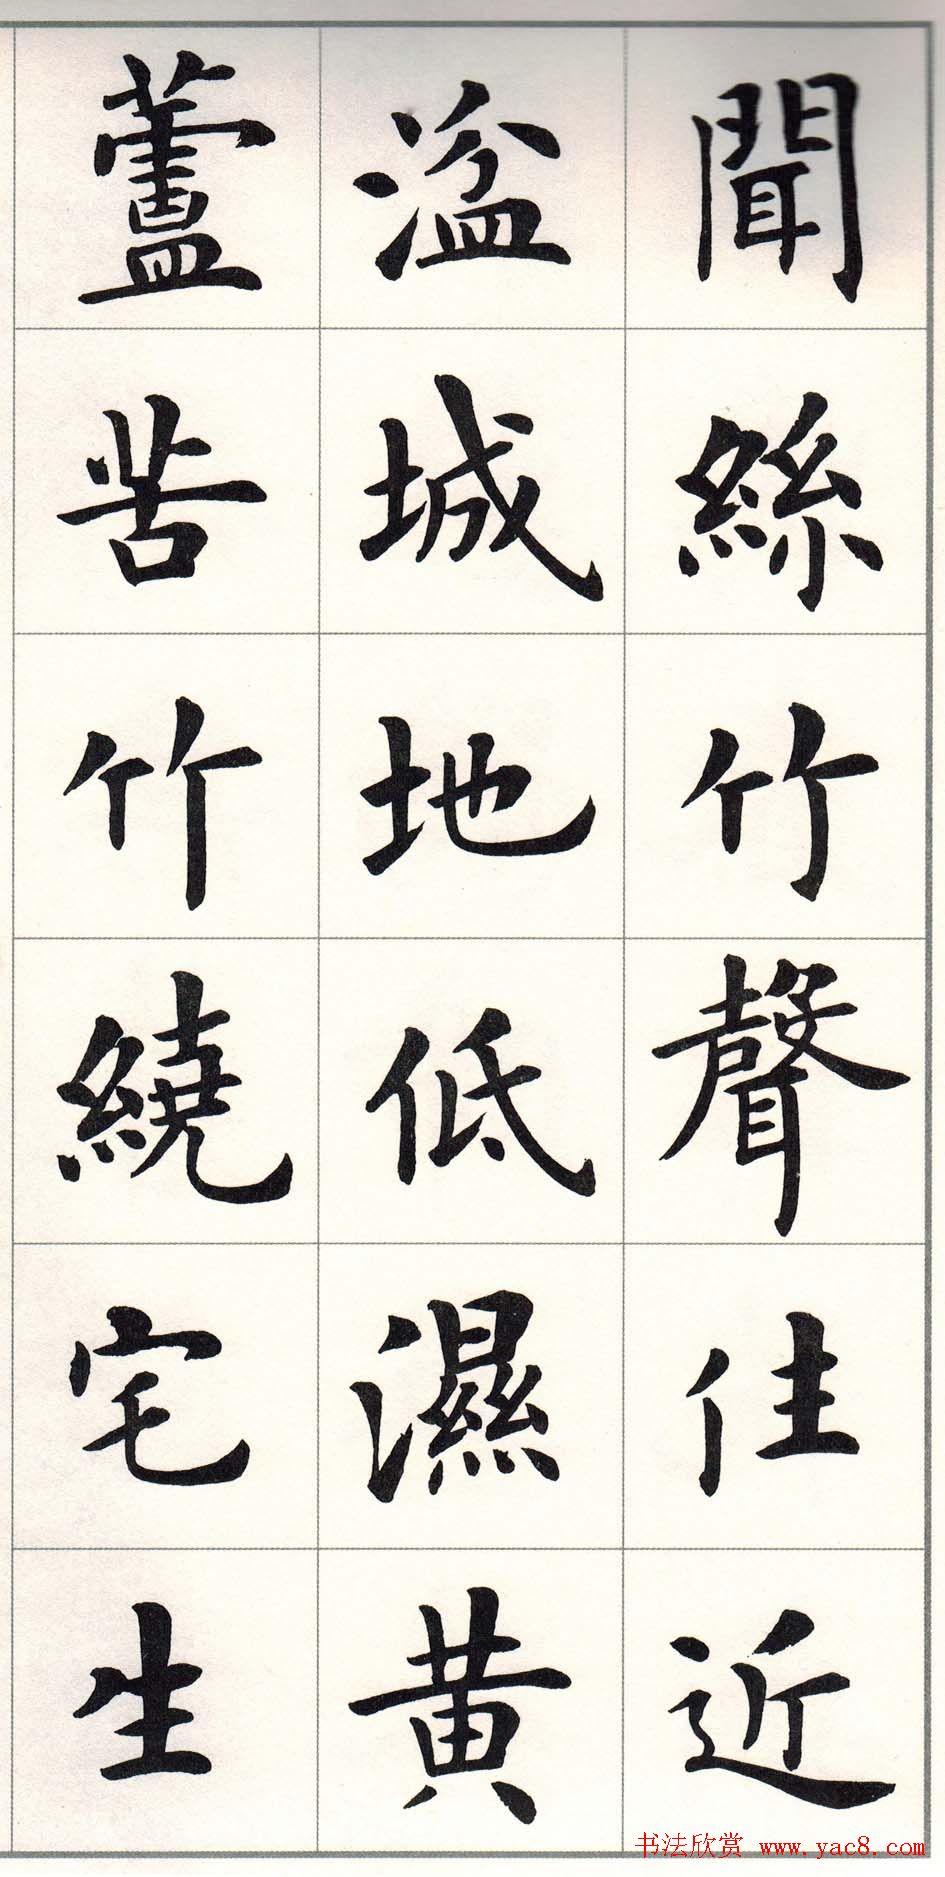 聞絲竹聲住近
湓城地低濕黄
蘆苦竹繞宅生
书法欣赏 www.yac8.com